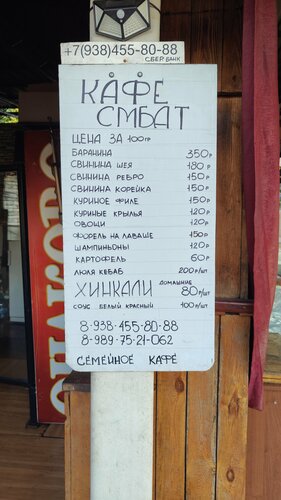 +7(938)455-80-88
СБЕР БАНК
КАФЕ
СМБАТ
ЦЕНА ЗА 100гр
БАРАНИНА 350р
СВИНИНА ШЕЯ 180р
СВИНИНА РЕБРО 150р
СВИНИНА КОРЕЙКА 150р
КУРИНОЕ ФИЛЕ 150р
КУРИНЫЕ КРЫЛЬЯ 120р
ОВОЩИ 120р
ФОРЕЛЬ НА ЛАВАШЕ 150р
ШАМПИНЬОНЫ 120р
КАРТОФЕЛЬ 60р
ЛЮЛЯ КЕБАБ 200р/шт
ХИНКАЛИ ДОМАШНИЕ 80р/шт
СОУС БЕЛЫЙ КРАСНЫЙ 100р/шт
8-938-455-80-88
8-989-75-21-062
СЕМЕЙНОЕ КАФЕ
ОЧАКОВО